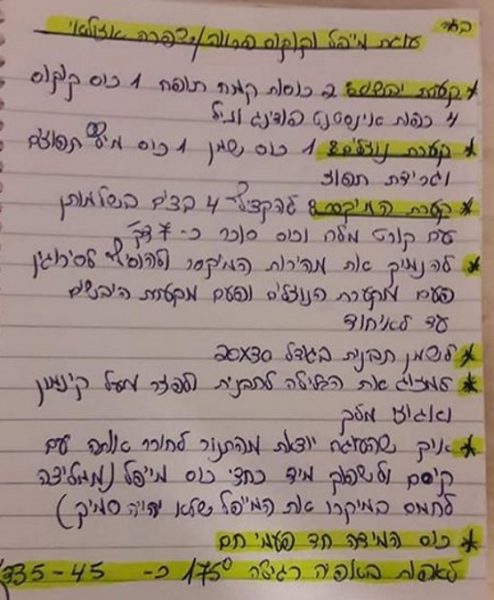 בס"ד
עוגת מייפל וקוקוס פרווה/ציפורה אזולאי
* קערת יבשים: 2 כוסות קמח תופח 1 כוס קוקוס
4 כפות אינסטנט פודינג וניל
* קערת נוזלים: 1 כוס שמן 1 כוס מיץ תפוזים
וגרידת תפוז
* קערת המיקסר: להקציף 4 ביצים בשלמותן
עם קורט מלח וכוס סוכר כ-7 דק'
* להנמיך את מהירות המיקסר ולהוסיף לסירוגין
פעם מקערת הנוזלים ופעם מקערת היבשים
עד לאיחוד
* לשמן תבנית בגודל 20x30
* למזוג את הבלילה לתבנית ולפזר מעל קינמון
ואגוזי מלך
* איך שהעוגה יוצאת מהתנור לחורר אותה עם
קיסם ולשפוך מיד כחצי כוס מייפל (ממליצה
לחמם במיקרו את המייפל שלא יהיה סמיך)
* כוס המידה חד פעמי חם
לאפות באפיה רגילה 175° כ- 35-45 דק'